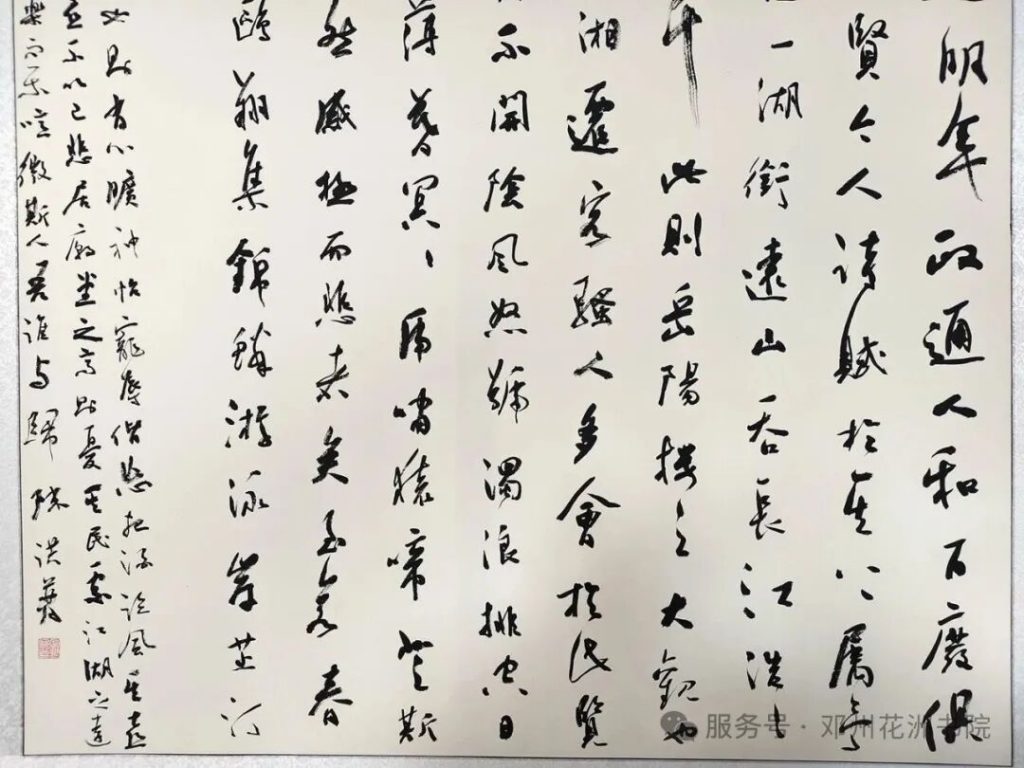 明年政通人和百廢俱
賢今人詩賦於其上屬予
一湖銜遠山吞長江浩〻
此則岳陽樓之大觀也
湘遷客騷人多會於此覽
不開陰風怒號濁浪排空日
薄暮冥〻虎嘯猿啼登斯
然感極而悲者矣至若春
鷗翔集錦鱗游泳岸芷汀
則有心曠神怡寵辱偕忘把酒臨風其喜
不以己悲居廟堂之高則憂其民處江湖之遠
樂而樂噫微斯人吾誰与歸
服务号·邓州花洲书院